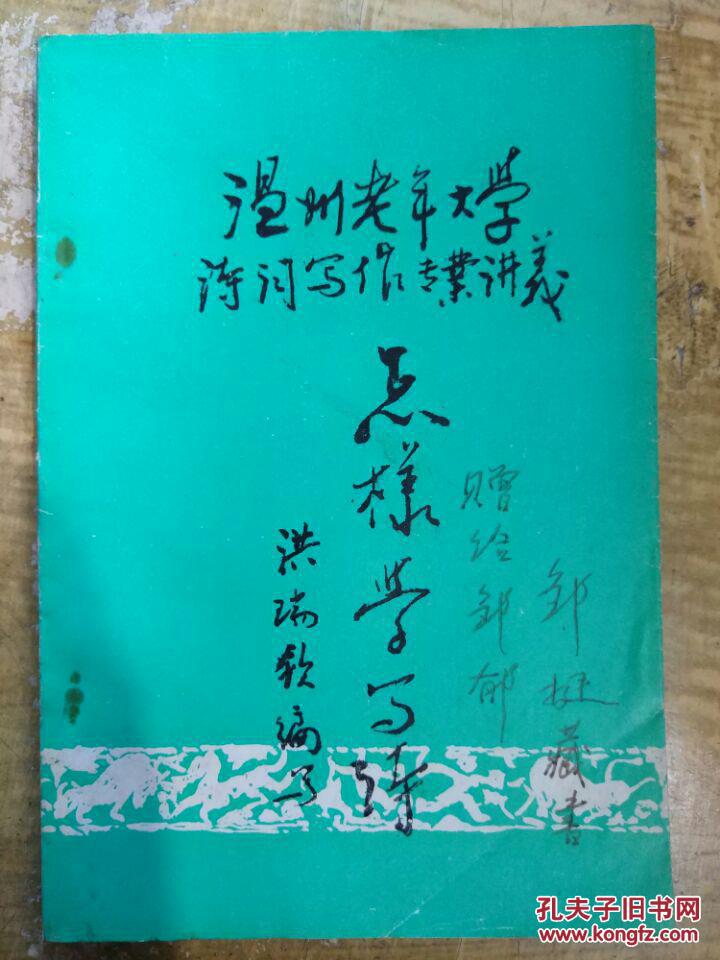 温州老年大学
诗词写作专業讲義
怎樣学写诗
洪瑞钦编写
赠给邹郁
邹挺藏書
孔夫子旧书网
www.kongfz.com